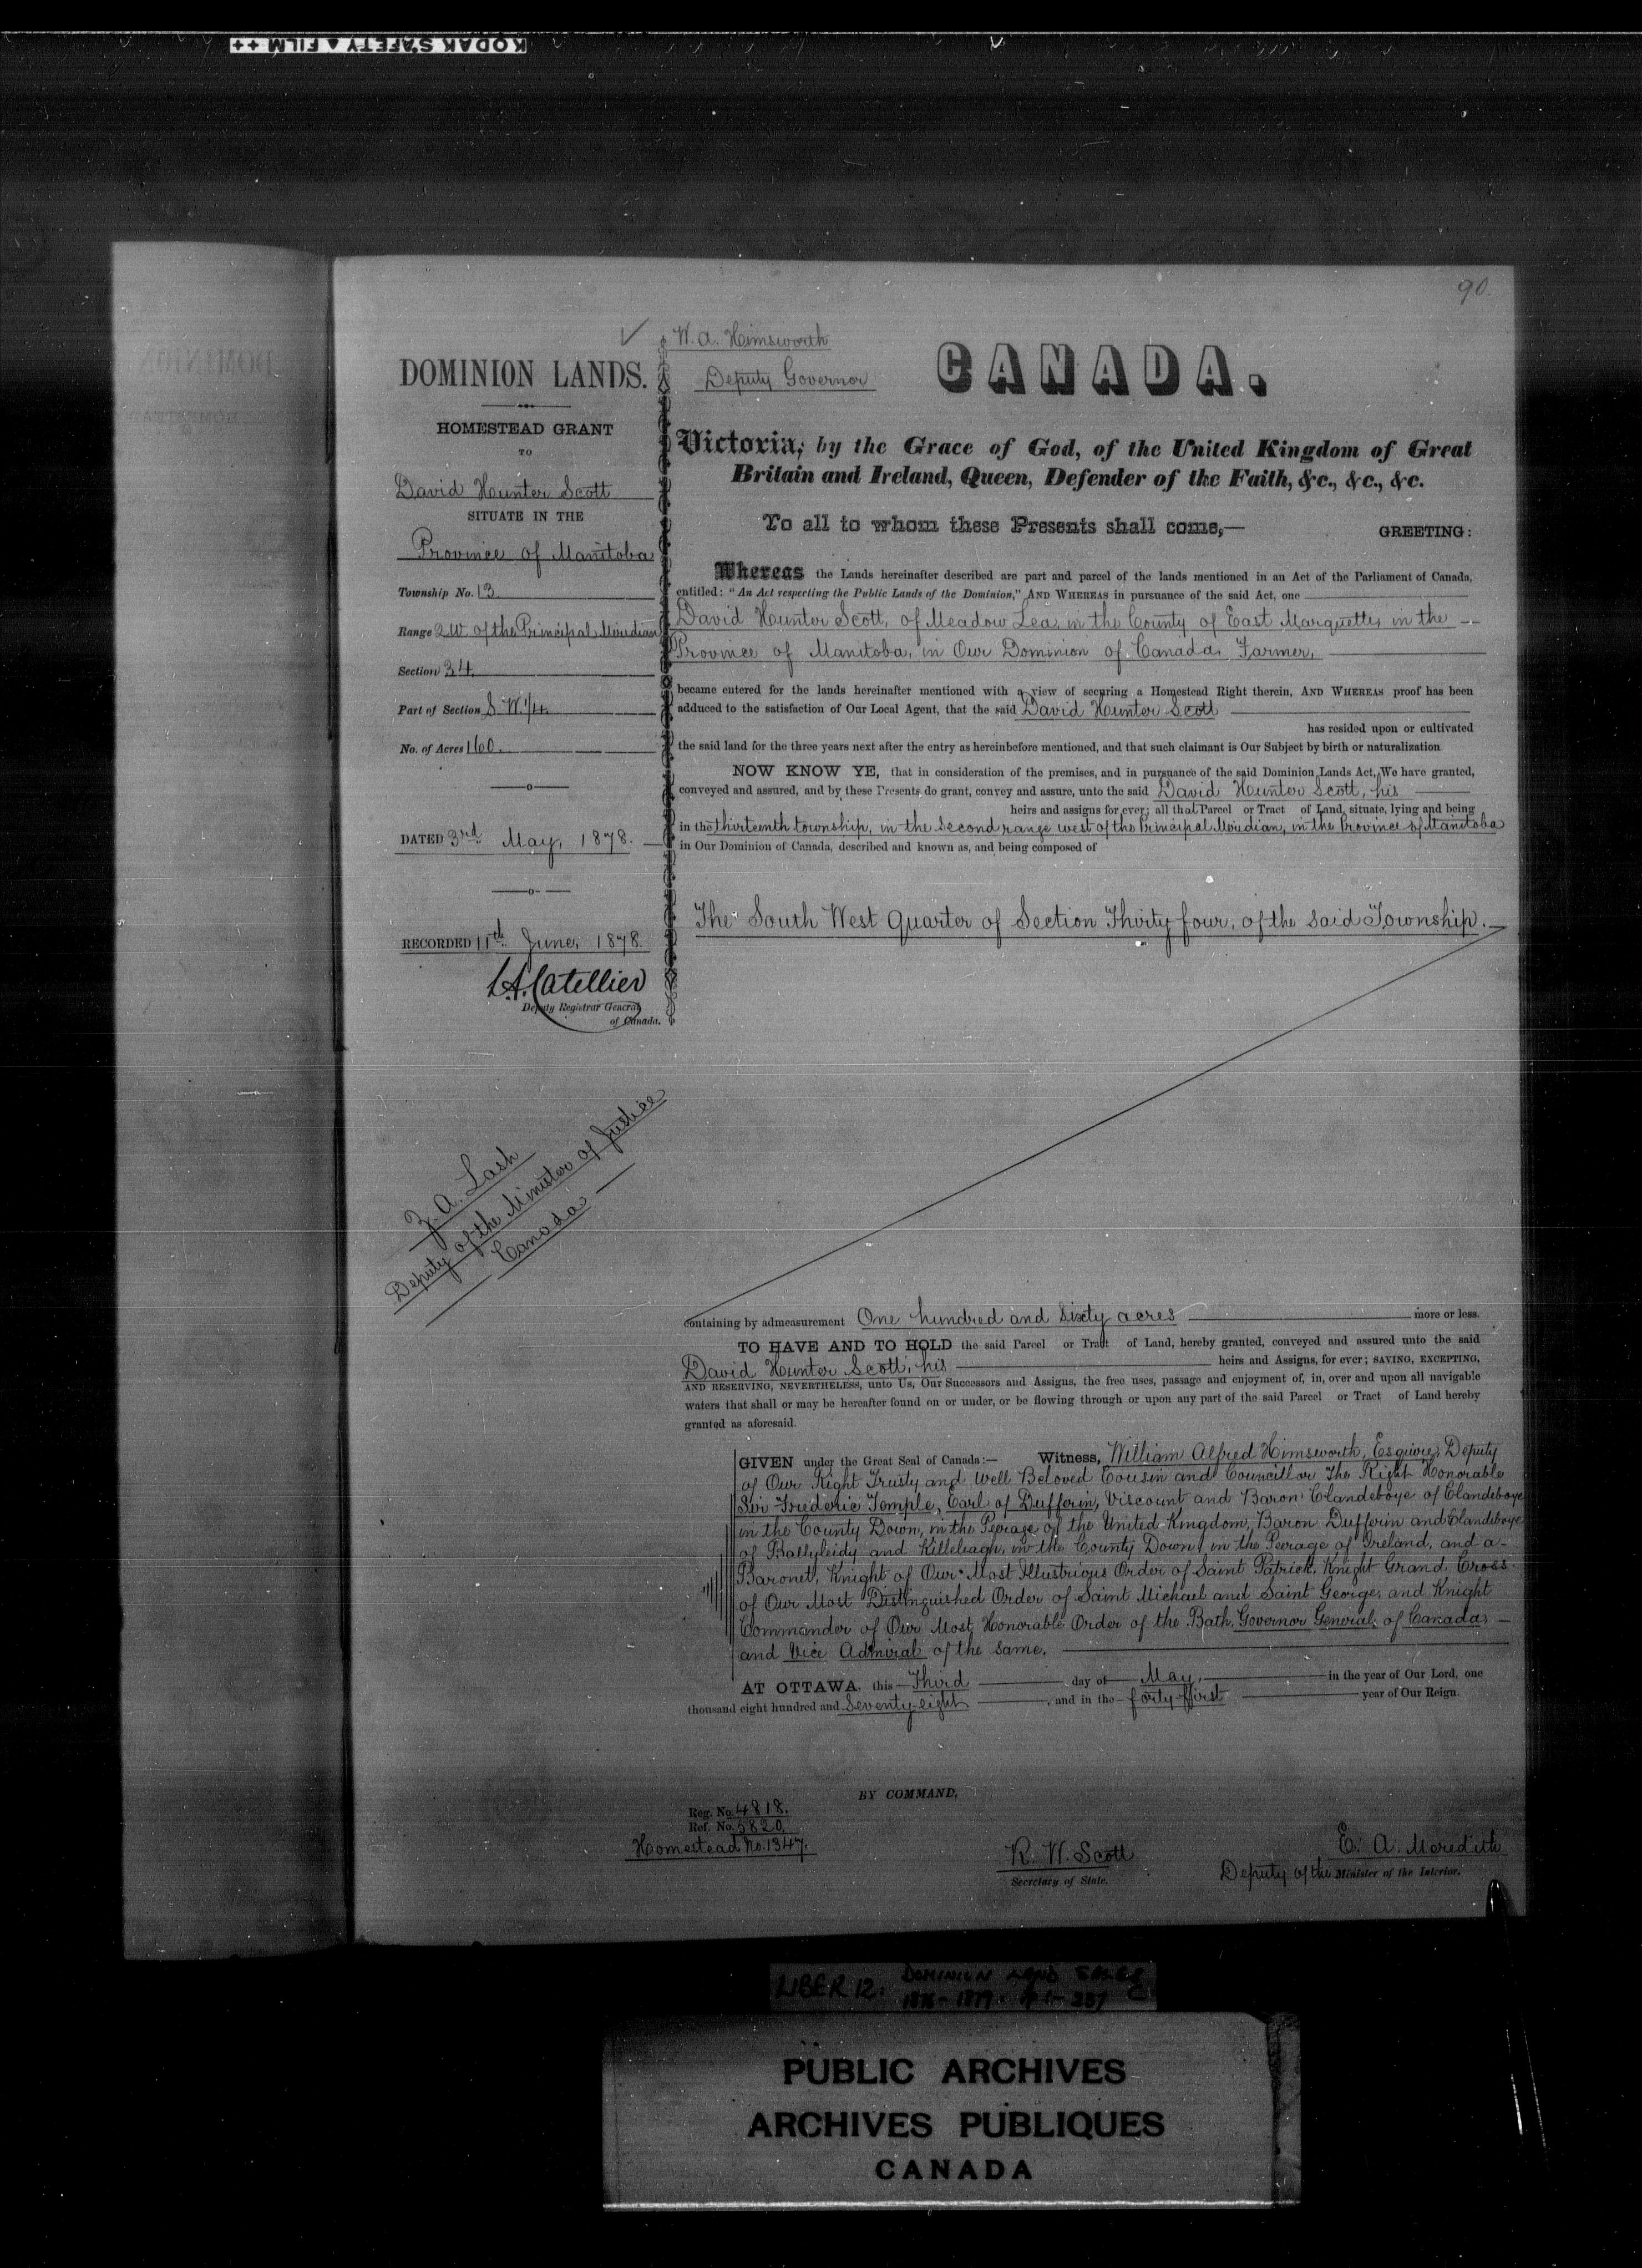 KODAK SAFETY FILM ++
90.
W. A. Himsworth
Deputy Governor
CANADA.
DOMINION LANDS.
HOMESTEAD GRANT
TO
David Hunter Scott
SITUATE IN THE
Province of Manitoba
Township No. 13
Range 2 W. of the Principal Meridian
Section 34.
Part of Section S. W. 1/4.
No. of Acres 160.
DATED 3rd. May, 1878.
RECORDED 11th. June, 1878.
L. A. Catellier
Deputy Registrar General
of Canada.
Z. A. Lash
Deputy of the Minister of Justice
Canada
Victoria, by the Grace of God, of the United Kingdom of Great
Britain and Ireland, Queen, Defender of the Faith, &c., &c., &c.
To all to whom these Presents shall come,— GREETING:
Whereas the Lands hereinafter described are part and parcel of the lands mentioned in an Act of the Parliament of Canada,
entitled: "An Act respecting the Public Lands of the Dominion," AND WHEREAS in pursuance of the said Act, one
David Hunter Scott, of Meadow Lea, in the County of East Marquette, in the
Province of Manitoba, in Our Dominion of Canada, Farmer,
became entered for the lands hereinafter mentioned with a view of securing a Homestead Right therein, AND WHEREAS proof has been
adduced to the satisfaction of Our Local Agent, that the said David Hunter Scott
has resided upon or cultivated
the said land for the three years next after the entry as hereinbefore mentioned, and that such claimant is Our Subject by birth or naturalization.
NOW KNOW YE, that in consideration of the premises, and in pursuance of the said Dominion Lands Act, We have granted,
conveyed and assured, and by these Presents do grant, convey and assure, unto the said David Hunter Scott, his
heirs and assigns for ever; all that Parcel or Tract of Land, situate, lying and being
in the thirteenth township, in the second range west of the Principal Meridian, in the Province of Manitoba
in Our Dominion of Canada, described and known as, and being composed of
The South West Quarter of Section Thirty four, of the said Township.
containing by admeasurement One hundred and sixty acres more or less.
TO HAVE AND TO HOLD the said Parcel or Tract of Land, hereby granted, conveyed and assured unto the said
David Hunter Scott, his heirs and Assigns, for ever; SAVING, EXCEPTING,
AND RESERVING, NEVERTHELESS, unto Us, Our Successors and Assigns, the free uses, passage and enjoyment of, in, over and upon all navigable
waters that shall or may be hereafter found on or under, or be flowing through or upon any part of the said Parcel or Tract of Land hereby
granted as aforesaid.
GIVEN under the Great Seal of Canada:— Witness, William Alfred Himsworth, Esquire, Deputy
of Our Right Trusty and Well Beloved Cousin and Councillor The Right Honorable
Sir Frederic Temple, Earl of Dufferin, Viscount and Baron Clandeboye of Clandeboye
in the County Down, in the Peerage of the United Kingdom, Baron Dufferin and Clandeboye
of Ballyleidy and Killeleagh, in the County Down, in the Peerage of Ireland, and a
Baronet, Knight of Our Most Illustrious Order of Saint Patrick, Knight Grand Cross
of Our Most Distinguished Order of Saint Michael and Saint George, and Knight
Commander of Our Most Honorable Order of the Bath, Governor General of Canada,
and Vice Admiral of the same.
AT OTTAWA, this Third day of May, in the year of Our Lord, one
thousand eight hundred and Seventy-eight, and in the forty-first year of Our Reign.
BY COMMAND,
Reg. No. 4818.
Ref. No. 5820.
Homestead No. 1347.
R. W. Scott
Secretary of State.
E. A. Meredith
Deputy of the Minister of the Interior.
LIBER 12: DOMINION LAND SALES
1878-1879. pp 1-287 C
PUBLIC ARCHIVES
ARCHIVES PUBLIQUES
CANADA